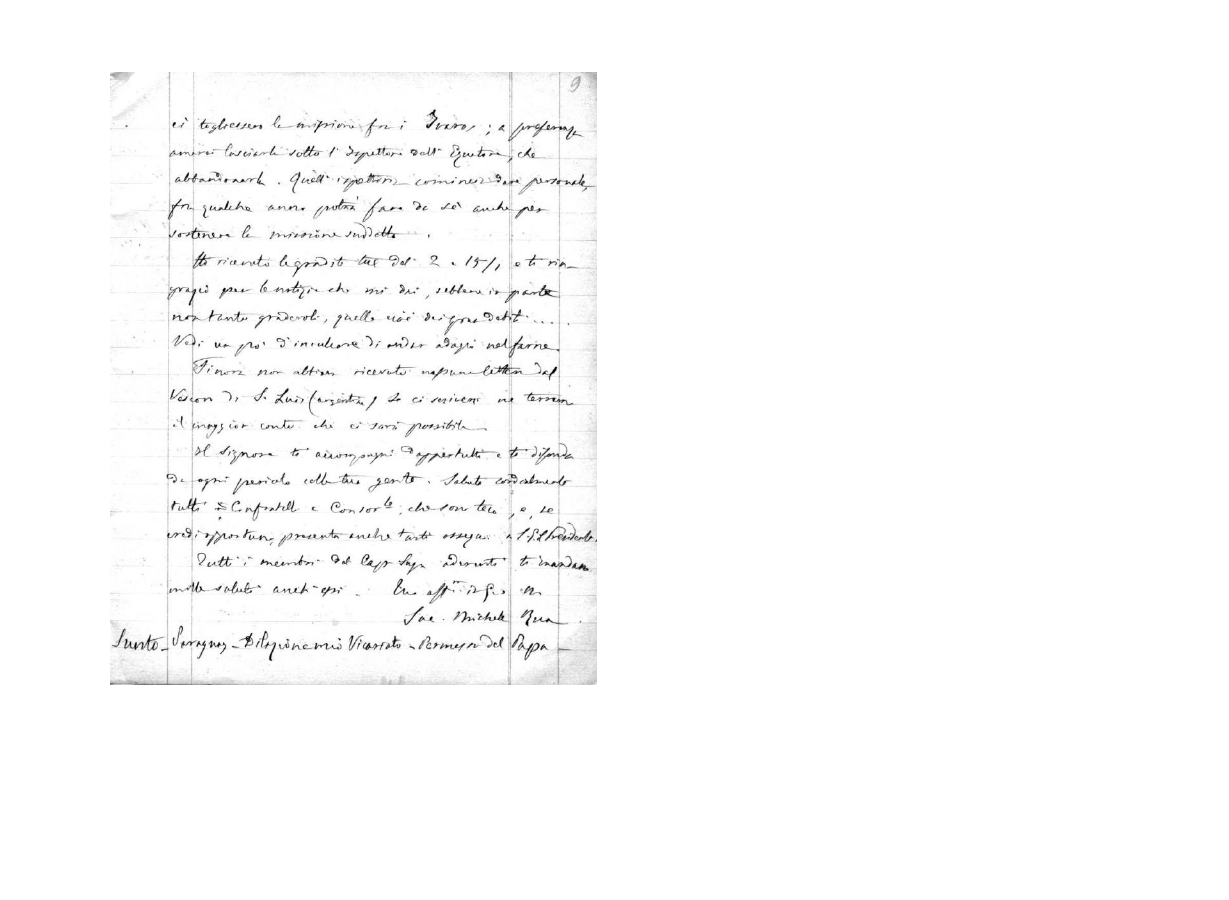 9
ci togliessero la missione fra i Jivaros; a preferenza
amerei lasciarla sotto l'Ispettore dell'Equatore, che
abbandonarla. Quell'ispettoria comincia a dare personale,
fra qualche anno potrà fare da sè anche per
sostenere la missione suddetta.
Ho ricevuto le gradite tue del 2 e 15/1 e ti rin-
grazio per le notizie che mi dai, sebbene in parte
non tanto gradevoli, quelle cioè dei gran debiti ....
Vedi un po' d'inculcare di andar adagio nel farne.
Finora non abbiam ricevuto nessuna lettera dal
Vescovo di S. Luis (argentina) Se ci scriverà ne terrem
il maggior conto che ci sarà possibile.
Il Signore ti accompagni dappertutto e ti difenda
da ogni pericolo colla tua gente. Saluta cordialmente
tutti i Confratelli e Consorle che son teco, e, se
credi opportuno, presenta anche tanti ossequi a S. E. il Presidente.
Tutti i membri del Cap. Sup. aderenti ti mandan
mille saluti anch'essi. Tuo aff. in G. e M.
Sac. Michele Rua
Sunto - Paraguay - Dilazione mio Vicariato - Permesso del Papa -